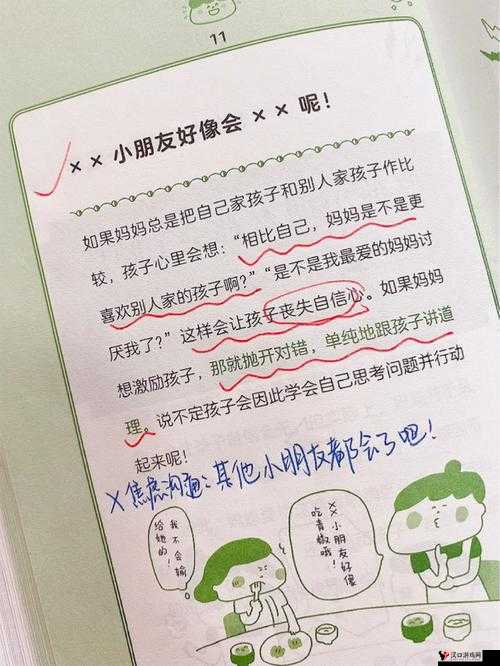 11
×× 小朋友好像会 ×× 呢！
如果妈妈总是把自己家孩子和别人家孩子作比
较，孩子心里会想：“相比自己，妈妈是不是更
喜欢别人家的孩子啊？”“是不是我最爱的妈妈讨
厌我了？”这样会让孩子丧失自信心。如果妈妈
想激励孩子，那就抛开对错，单纯地跟孩子讲道
理。说不定孩子会因此学会自己思考问题并行动
起来呢！
×焦虑沟通：其他小朋友都会了吧！
××小朋友好像
吃青椒哦！
我不会输
给她的！
汉口游戏网